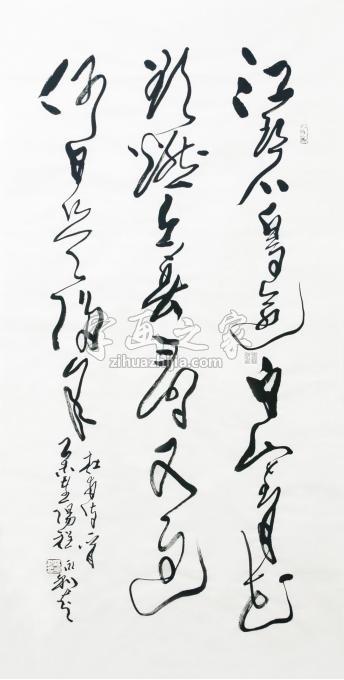 江碧鳥逾白山青花
欲燃今春看又過
何日是歸年
杜甫诗一首
重陽程
字画之家
zihuazhijia.com